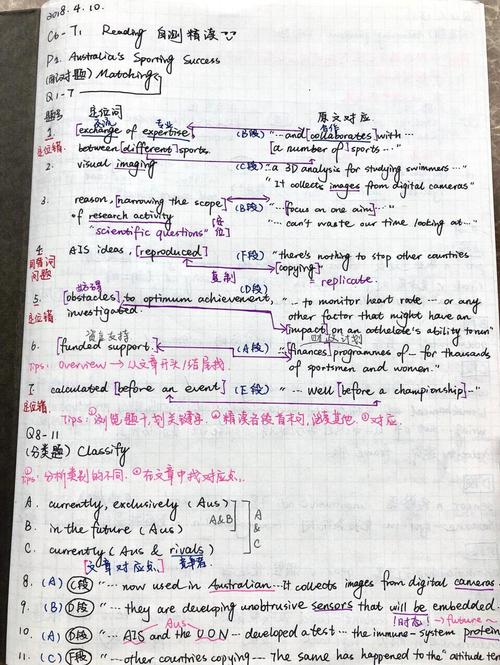 2018.4.10.
C6-T1 Reading 自测精读
P1. Australia's Sporting Success
(配对题) Matching
Q1-7
题号 定位词 原文对应
交流 专业 合作
1. [exchange of expertise] (B段) "…and [collaborates] with…
定位错 between [different] sports. [a number of] sports…"
2. visual imaging (C段) "…a 3D analysis for studying swimmers…"
"It collects images from digital cameras"
3. reason, [narrowing the scope] (B段) "…[focus on one aim]…
of research activity …can't waste our time looking at…"
"scientific questions" [定位]
4. AIS ideas, [reproduced] (F段) "there's nothing to stop other countries
同替词 [copying]"
问题 复制 replicate.
妨碍 (D段)
5. [obstacles] to optimum achievement, "… to monitor heart rate … or any
定位错 investigated. other factor that might have an
[impact] on an athelete's ability to run"
资金支持 财政计划
6. [funded support.] (A段) "[finances] programmes of … for thousands
Tips: Overview → 从文章开头/结尾找 of sportmen and women."
7. calculated [before an event] (E段) "… well [before a championship]…"
定位错
Tips: ①浏览题干,划关键词. ②精读各段首末句,略读其他. ③对应.
Q8-11
(分类题) Classify
Tips: ①分析类别的不同. ②在文章中找对应点.
A. currently, exclusively (Aus)
A&B A & C
B. in the future (Aus)
C. currently (Aus & rivals)
[文章对应点] 竞争者
8. (A) (C段) "… now used in Australian…It collects images from digital cameras
9. (B) (D段) "… they are developing unobtrusive sensors that will be embedded
Aus [时态] → future~
10. (A) (D段) "… AIS and the U.O.N … developed a test … the immune-system protein
11. (C) (F段) "…other countries copying … The same has happened to the "altitude tent